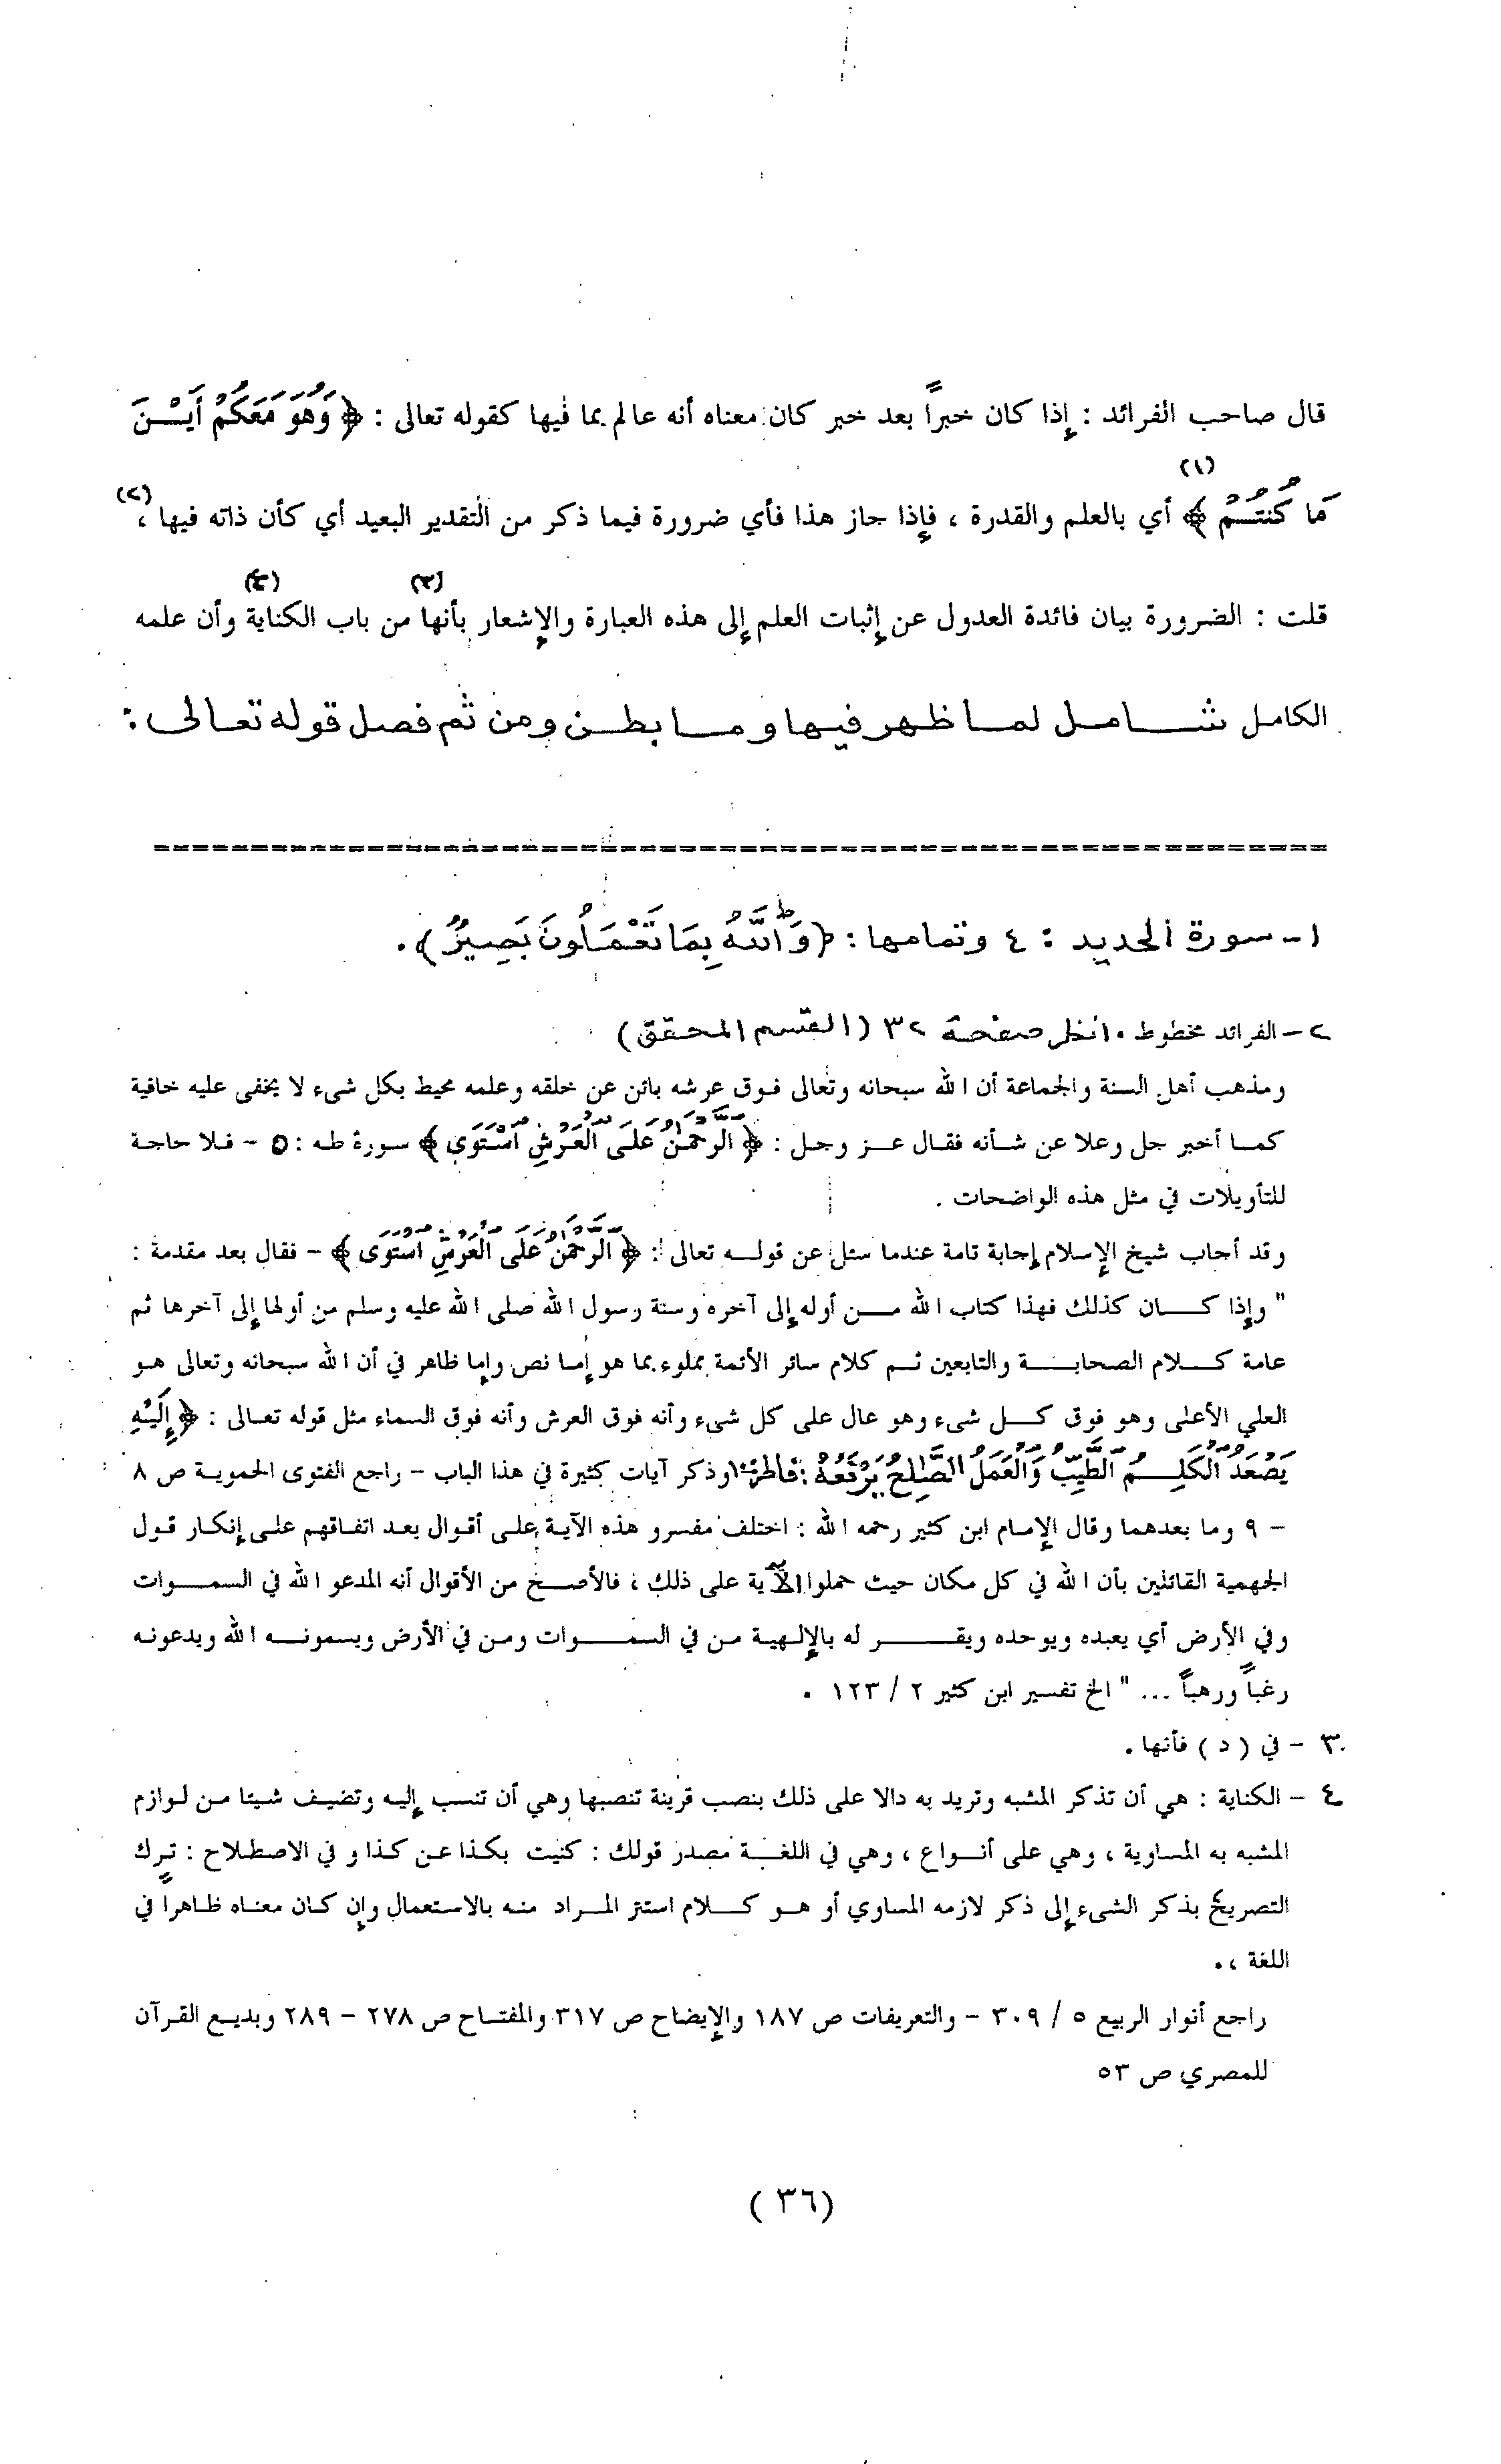 قال صاحب الفرائد : إذا كان خبراً بعد خبر كان معناه أنه عالم بما فيها كقوله تعالى : ﴿ وَهُوَ مَعَكُمْ أَيْـنَ
مَا كُنتُـمْ ﴾ (١) أي بالعلم والقدرة ، فإذا جاز هذا فأي ضرورة فيما ذكر من التقدير البعيد أي كأن ذاته فيها ، (٢)
قلت : الضرورة بيان فائدة العدول عن إثبات العلم إلى هذه العبارة والإشعار بأنها (٣) من باب الكناية (٤) وأن علمه
الكامل شـامـل لمـا ظهـر فيهـا ومـا بطـن ومن ثم فصل قوله تعـالى :
١ - سورة الحديد : ٤ وتمامها : ﴿ وَاللَّهُ بِمَا تَعْمَلُونَ بَصِيرٌ ﴾ .
٢ - الفرائد مخطوط . انظر صفحة ٣٢ (القسم المحقق)
ومذهب أهل السنة والجماعة أن الله سبحانه وتعالى فوق عرشه بائن عن خلقه وعلمه محيط بكل شىء لا يخفى عليه خافية
كمـا أخبر جل وعلا عن شـأنه فقـال عـز وجـل : ﴿ الرَّحْمَنُ عَلَى الْعَرْشِ اسْتَوَى ﴾ سورة طه : ٥ - فـلا حاجـة
للتأويلات في مثل هذه الواضحات .
وقد أجاب شيخ الإسلام إجابة تامة عندما سئل عن قولـه تعالى : ﴿ الرَّحْمَنُ عَلَى الْعَرْشِ اسْتَوَى ﴾ - فقال بعد مقدمة :
" وإذا كـان كذلك فهذا كتاب الله مـن أوله إلى آخره وسنة رسول الله صلى الله عليه وسلم من أولها إلى آخرها ثم
عامة كـلام الصحابـة والتابعين ثـم كلام سائر الأئمة مملوء بما هو إما نص وإما ظاهر في أن الله سبحانه وتعالى هـو
العلي الأعلى وهو فوق كـل شىء وهو عال على كل شىء وأنه فوق العرش وأنه فوق السماء مثل قوله تعـالى : ﴿ إِلَيْهِ
يَصْعَدُ الْكَلِـمُ الطَّيِّبُ وَالْعَمَلُ الصَّالِحُ يَرْفَعُهُ ﴾ : فاطر : ١٠ وذكر آيات كثيرة في هذا الباب - راجع الفتوى الحمويـة ص ٨
- ٩ وما بعدهما وقال الإمام ابن كثير رحمه الله : اختلف مفسرو هذه الآيـة على أقوال بعد اتفاقهم على إنكار قول
الجهمية القائلين بأن الله في كل مكان حيث حملوا الآية على ذلك ، فالأصـح من الأقوال أنه المدعو الله في السمـوات
وفي الأرض أي يعبده ويوحده ويقـر له بالإلـهية من في السمـوات ومن في الأرض ويسمونـه الله ويدعونـه
رغباً ورهباً ... " الخ تفسير ابن كثير ٢ / ١٢٣ .
٣ - في ( د ) فأنها .
٤ - الكناية : هي أن تذكر المشبه وتريد به دالا على ذلك بنصب قرينة تنصبها وهي أن تنسب إليه وتضيف شيئا من لوازم
المشبه به المساوية ، وهي على أنـواع ، وهي في اللغـة مصدر قولك : كنيت بكذا عن كذا و في الاصطلاح : ترك
التصريح بذكر الشىء إلى ذكر لازمه المساوي أو هـو كـلام استتر المـراد منـه بالاستعمال وإن كـان معنـاه ظـاهراً في
اللغة ، .
راجع أنوار الربيع ٥ / ٣٠٩ - والتعريفات ص ١٨٧ والإيضاح ص ٣١٧ والمفتـاح ص ٢٧٨ - ٢٨٩ وبديـع القـرآن
للمصري ص ٥٣
( ٣٦ )